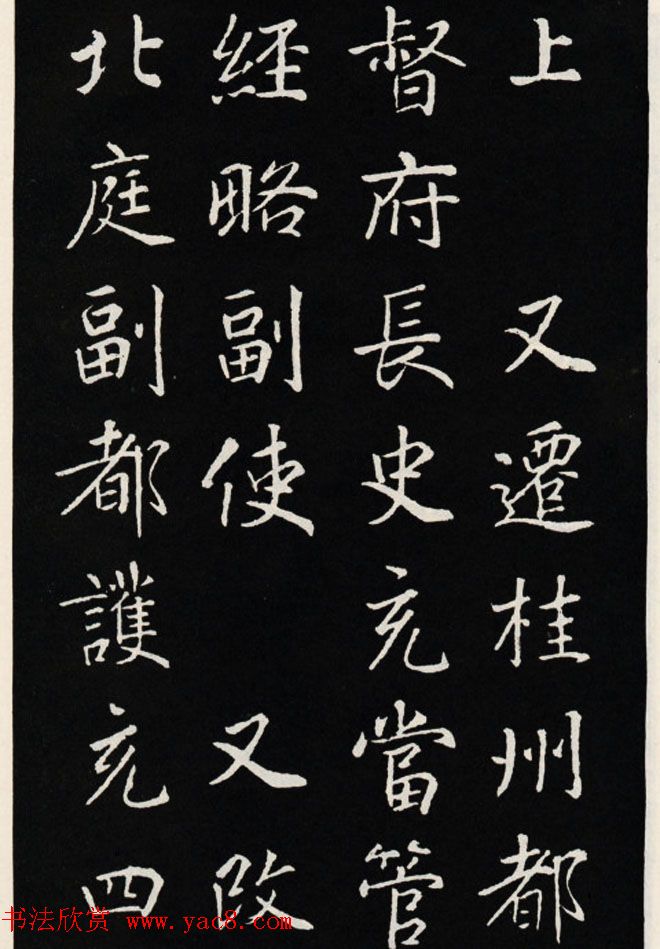 上　又遷桂州都
督府長史充當管
經略副使　又改
北庭副都護充四
书法欣赏 www.yac8.com